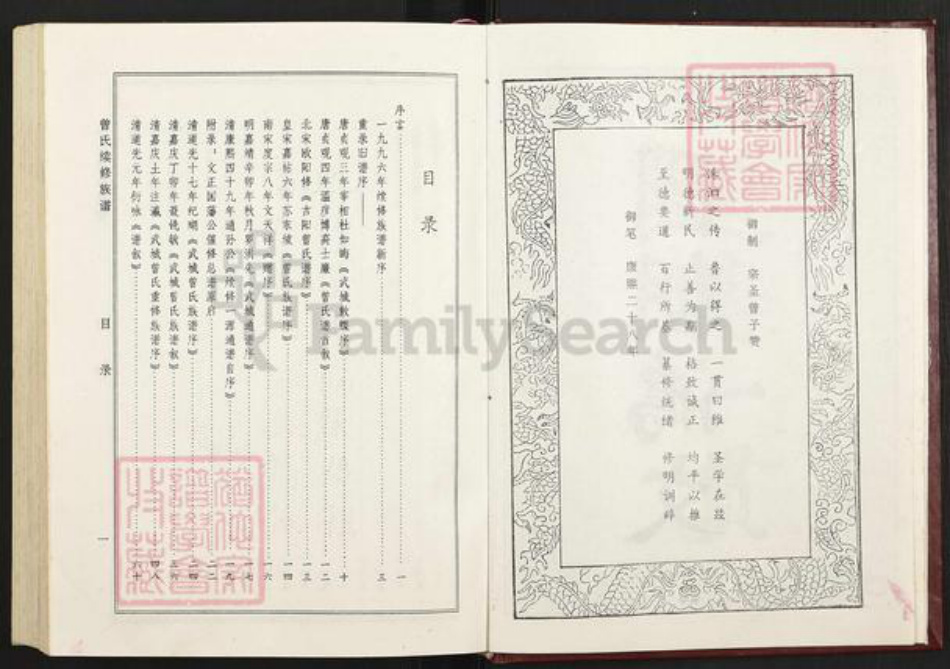 御制 宗圣曾子赞
洙泗之传 鲁以得之 一贯曰唯 圣学在兹
明德新民 止善为期 格致诚正 均平以推
至德要道 百行所基 纂修统绪 修明训辞
御笔 康熙二十八年
目 录
序言 一
一九九六年续修族谱新序 三
重录旧谱序
唐贞观三年宰相杜如晦《武城敕牒序》 十
唐贞观四年温彦博高士廉《曾氏谱首叙》 一二
北宋欧阳修《吉阳曾氏谱序》 一三
皇宋嘉祐六年苏东坡《曾氏族谱序》 一四
南宋度宗八年文天祥《赠序》 一六
明嘉靖辛卯年秋月 《武城通谱序》 一七
清康熙四十九年通孙公《续修一源通谱首序》 一九
附录：文正国藩公催修总谱原启 二二
清道光十七年纪瑚《武城曾氏族谱序》 二四
清嘉庆丁卯年聂镜敏《武城曾氏族谱叙》 三六
清嘉庆 年汪瀛《武城曾氏重修族谱序》 四八
清道光元年衍咏《谱叙》 六十
曾氏续修族谱
目 录
一
FamilySearch